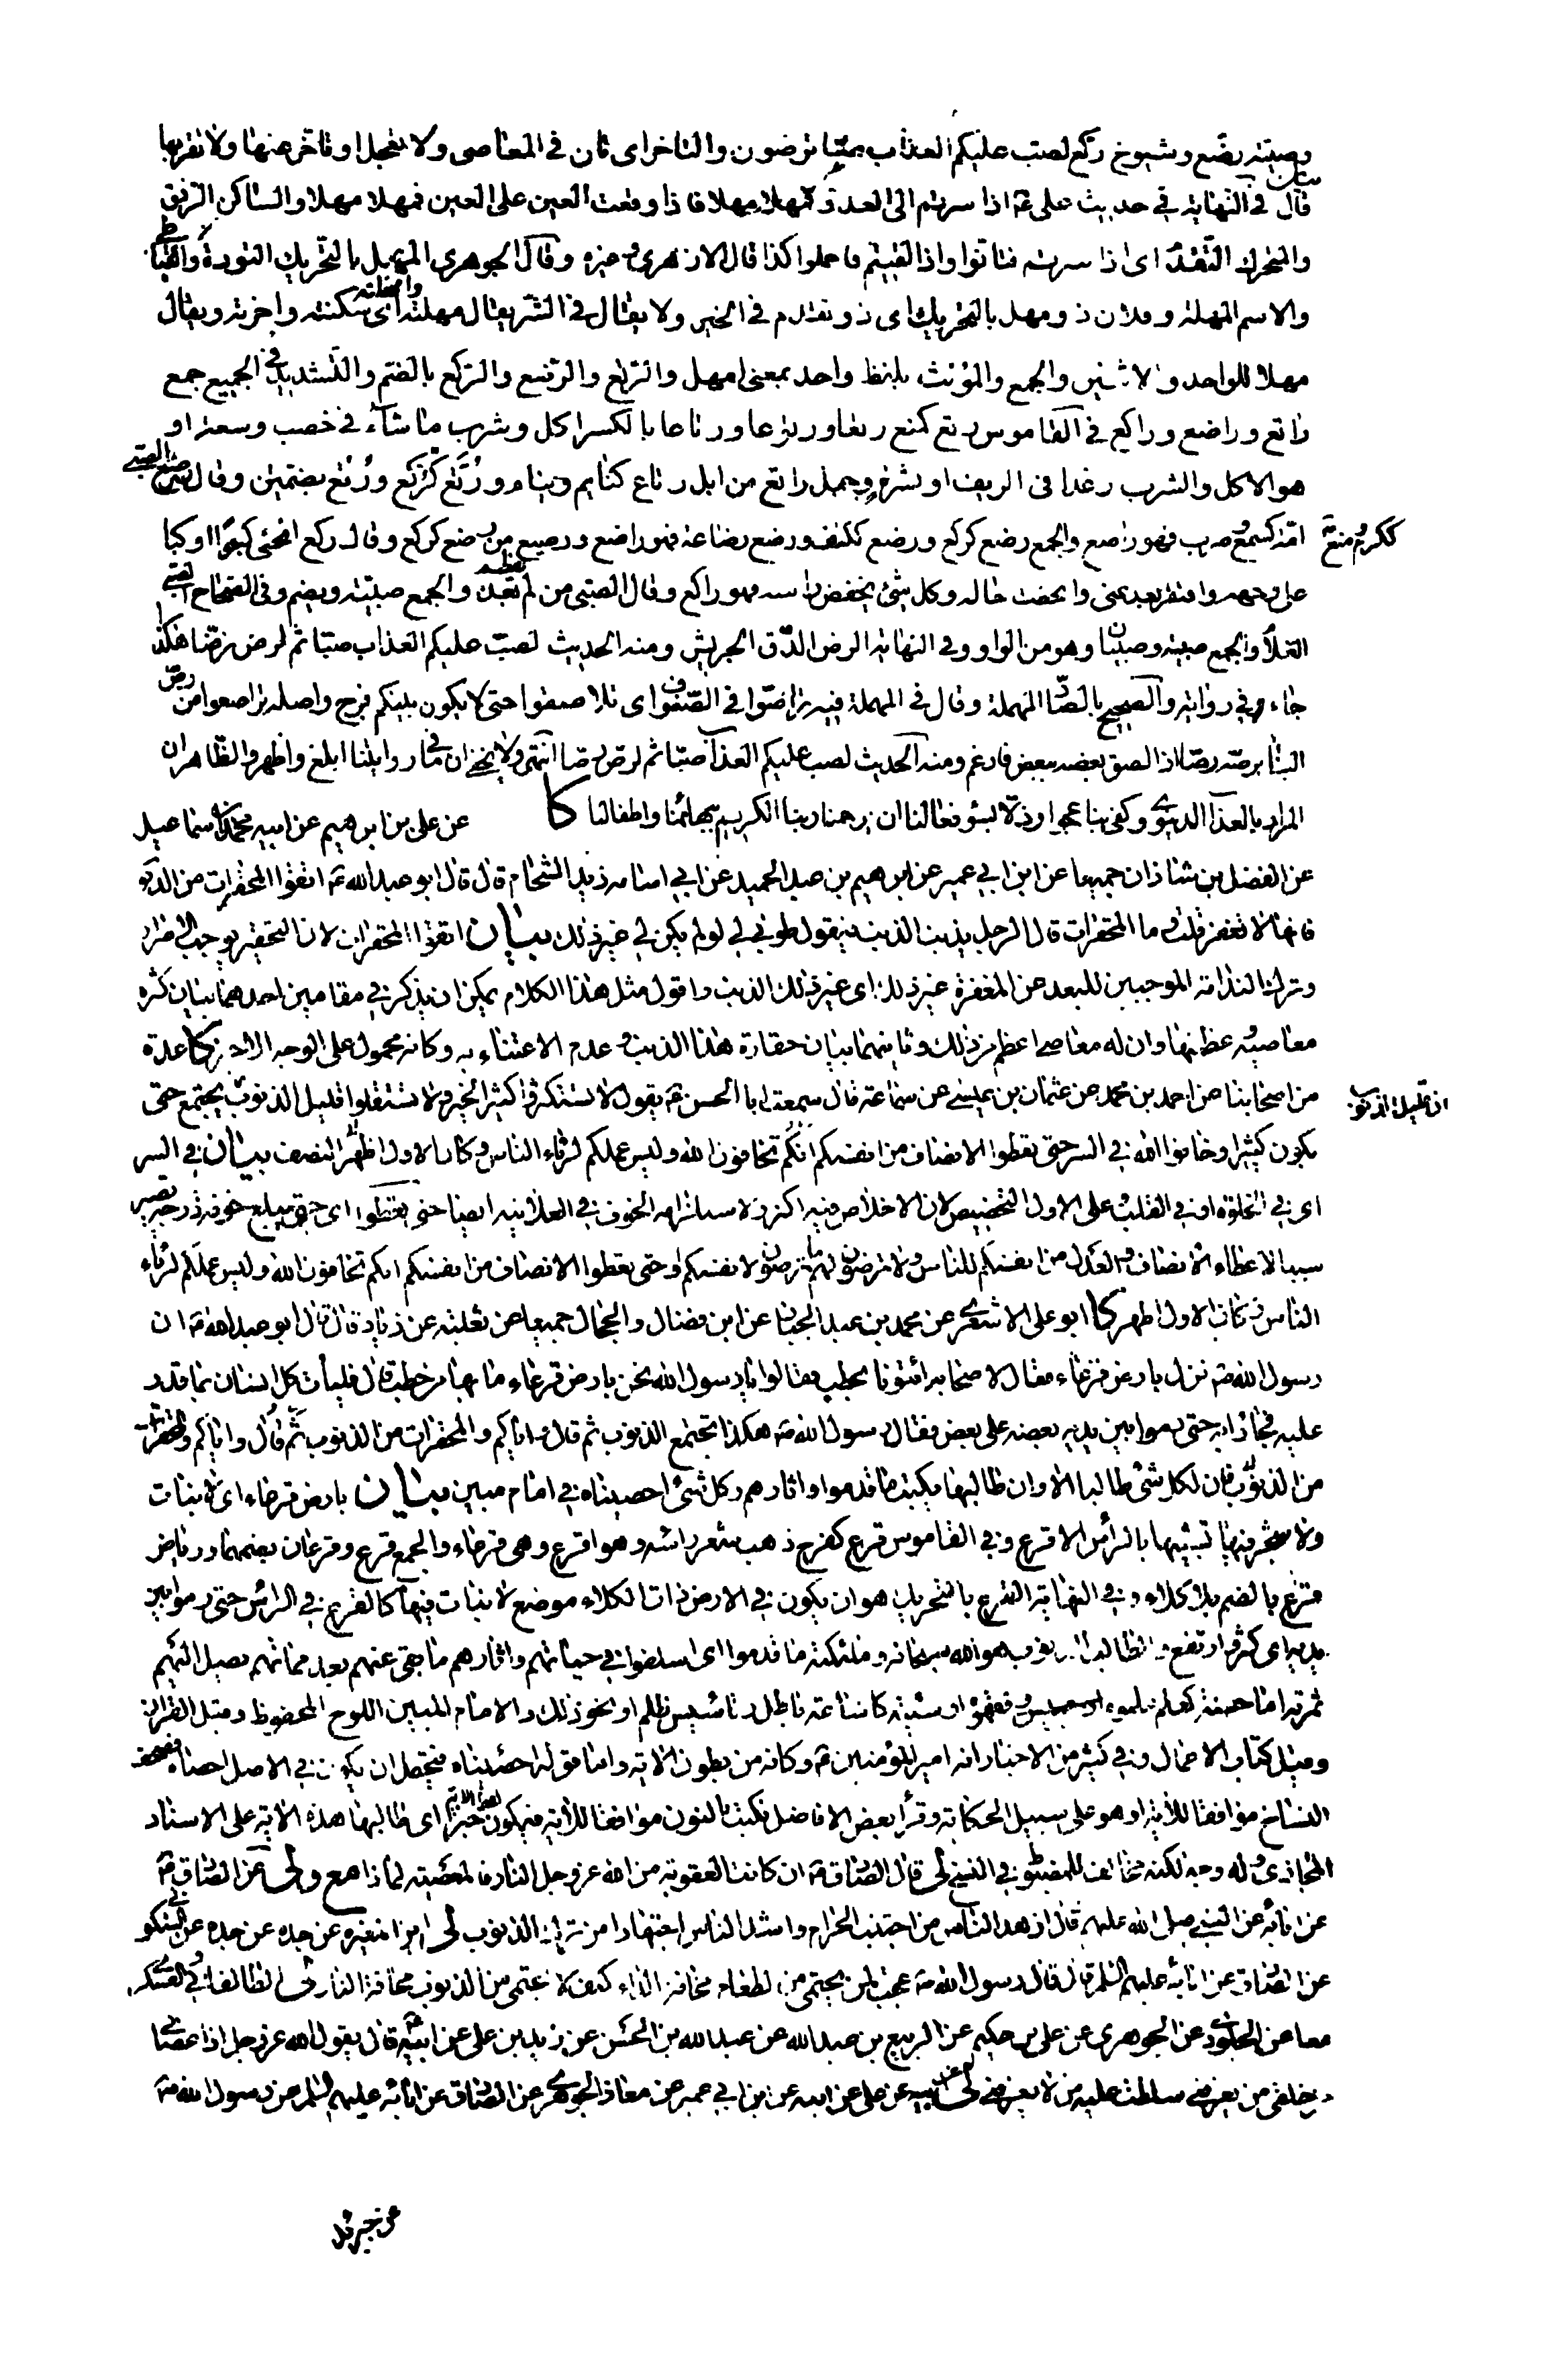 وصبية رضع وشيوخ ركع لصب عليكم العذاب صبا ترضون والتاخر اى تان فى المعاصى ولا تعجل او تاخر عنها ولا تقربها
بيان
قال فى النهاية فى حديث على ع اذا سرتم الى العدو فمهلا مهلا فاذا وقعت العين على العين فمهلا مهلا والساكن الرفق
والمتحرك التقدم اى اذا سرتم فتانوا واذا لقيتم فاحملوا كذا قال الازهرى وغيره وقال الجوهرى المهل بالتحريك التؤدة
والاسم المهلة وفلان ذو مهل بالتحريك اى ذو تقدم فى الخير ولا يقال فى الشر يقال مهلته وامهلته اى سكنته واخرته ويقال
مهلا للواحد والاثنين والجمع والمؤنث بلفظ واحد بمعنى امهل والرتع والرضع والركع بالضم والتشديد فى الجميع جمع
راتع وراضع وراكع فى القاموس رتع كمنع رتعا ورتوعا ورتاعا بالكسر اكل وشرب ما شاء فى خصب وسعة او
هو الاكل والشرب رغدا فى الريف او بشره وجمل راتع من ابل رتاع كنائم ونيام ورتع كركع ورتع بضمتين وقال رضع الصبى
امه كسمع وضرب فهو راضع والجمع رضع كركع ورضع ككتف ورضع رضاعة فهو راضع ورضيع من رضع كركع وقال ركع انحنى كبرا او كبا
ككرم ومنع
على وجهه وافتقر بعد غنى وانحطت حاله وكل شئ يخفض راسه فهو راكع وقال الصبى من لم يفطم بعد والجمع صبية ويضم وفى الصحاح الصبى
الغلام والجمع صبية وصبيان وهو من الواو وفى النهاية الرض الدق الجريش ومنه الحديث لصب عليكم العذاب صبا ثم لرض رضا هكذا
جاء فى رواية والصحيح بالصاد المهملة وقال فى المهملة فيه تراصوا فى الصفوف اى تلاصقوا حتى لا يكون بينكم فرج واصله تراصصوا من رص
البناء يرصه رصا اذا الصق بعضه ببعض فادغم ومنه الحديث لصب عليكم العذاب صبا ثم لرص رصا انتهى ولا يخفى ان ما فى روايتنا ابلغ واظهر والظاهر ان
المراد بالعذاب الدنيوى وكفى بنا عجزا وذلا بسوء فعالنا ان يرحمنا ربنا الكريم ببهائمنا واطفالنا كا عن على بن ابرهيم عن ابيه ومحمد بن اسماعيل
عن الفضل بن شاذان جميعا عن ابن ابى عمير عن ابرهيم بن عبد الحميد عن ابى اسامة زيد الشحام قال قال ابو عبد الله ع اتقوا المحقرات من الذنوب
فانها لا تغفر قلت وما المحقرات قال الرجل يذنب الذنب فيقول طوبى لى لو لم يكن لى غير ذلك بيان اتقوا المحقرات لان التحقير يوجب الاصرار
وترك الندامة الموجبين للبعد عن المغفرة غير ذلك اى غير ذلك الذنب واقول مثل هذا الكلام يمكن ان يذكر فى مقامين احدهما بيان كثرة
معاصيه وعظمتها وان له معاصى اعظم من ذلك وثانيهما بيان حقارة هذا الذنب وعدم الاعتناء به وكانه محمول على الوجه الاخير كا عدة
من اصحابنا عن احمد بن محمد عن عثمان بن عيسى عن سماعة قال سمعت ابا الحسن ع يقول لا تستكثروا كثير الخير ولا تستقلوا قليل الذنوب يجتمع حتى
ان قليل الذنوب
يكون كثيرا وخافوا الله فى السر حتى تعطوا الانصاف من انفسكم انكم تخافون الله وليس عملكم لرئاء الناس وكان الاول اظهر بيان فى السر
اى فى الخلوة او فى القلب على الاول التخصيص لان الاخلاص فيه اكثر ولاستلزامه الخوف فى العلانية ايضا حتى تعطوا اى حتى يبلغ خوفه درجة يصير
سببا لاعطاء الانصاف والعدل من انفسكم للناس ولا ترضون لهم ما لا ترضون لانفسكم او حتى تعطوا الانصاف من انفسكم انكم تخافون الله وليس عملكم لرئاء
الناس وكان الاول اظهر كا ابو على الاشعرى عن محمد بن عبد الجبار عن ابن فضال والحجال جميعا عن ثعلبة عن زياد قال قال ابو عبد الله ع ان
رسول الله ص نزل بارض قرعاء فقال لاصحابه ائتونا بحطب فقالوا يا رسول الله نحن بارض قرعاء ما بها من حطب قال فليات كل انسان بما قدر
عليه فجاؤا به حتى رموا بين يديه بعضه على بعض فقال رسول الله ص هكذا تجتمع الذنوب ثم قال اياكم والمحقرات من الذنوب ثم قال واياكم والمحقرات
من الذنوب فان لكل شئ طالبا الا وان طالبها يكتب ما قدموا واثارهم وكل شئ احصيناه فى امام مبين بيان بارض قرعاء اى لا نبات
ولا شجر فيها تشبيها بالراس الاقرع وفى القاموس قرع كفرح ذهب شعر راسه وهو اقرع وهى قرعاء والجمع قرع وقرعان بضمهما ورياض
قرع بالضم بلا كلاء وفى النهاية القرع بالتحريك هو ان يكون فى الارض ذات الكلاء موضع لا نبات فيها كالقرع فى الراس حتى رموا بين
يديه اى كثر وارتفع والطالب للذنوب هو الله سبحانه وملئكته ما قدموا اى اسلفوا فى حياتهم واثارهم ما بقى عنهم بعد مماتهم يصل اليهم
ثمرته اما حسنة كعلم علموه او حبيس وقفوه او سيئة كاشاعة باطل وتاسيس ظلم او نحو ذلك والامام المبين اللوح المحفوظ وقيل القران
وقيل كتاب الاعمال وفى كثير من الاخبار انه امير المؤمنين ع وكانه من بطون الاية واما قوله احصيناه فيحتمل ان يكون فى الاصل احصاه فصحف
النساخ موافقا للاية او هو على سبيل الحكاية وقرا بعض الافاضل نكتب بالنون موافقا للاية فيكون لفظ الاية خبرا اى طالبها هذه الاية على الاسناد
المجازى وله وجه لكنه مخالف للمضبوط فى النسخ لى قال الصادق ع ان كانت العقوبة من الله عز وجل النار فالمعصية لماذا مع ولى عن الصادق ع
عن ابائه عن النبى صلى الله عليهم قال ازهد الناس من اجتنب الحرام واشد الناس اجتهادا من ترك الذنوب لى ابن المغيرة عن جده عن جده عن السكونى
عن الصادق عن ابائه عليهم السلم قال قال رسول الله ص عجبت لمن يحتمى من الطعام مخافة الداء كيف لا يحتمى من الذنوب مخافة النار لى الطالقانى والعسكرى
معا عن الجلودى عن الجوهرى عن على بن حكيم عن الربيع بن عبد الله عن عبد الله بن الحسن عن زيد بن على عن ابيه ع قال يقول الله عز وجل اذا عصانى
من خلقى من يعرفنى سلطت عليه من لا يعرفنى لى عن على عن ابيه عن ابن ابى عمير عن معاذ الجوهرى عن الصادق عن ابائه عليهم السلم عن رسول الله ص
عن جبرئيل